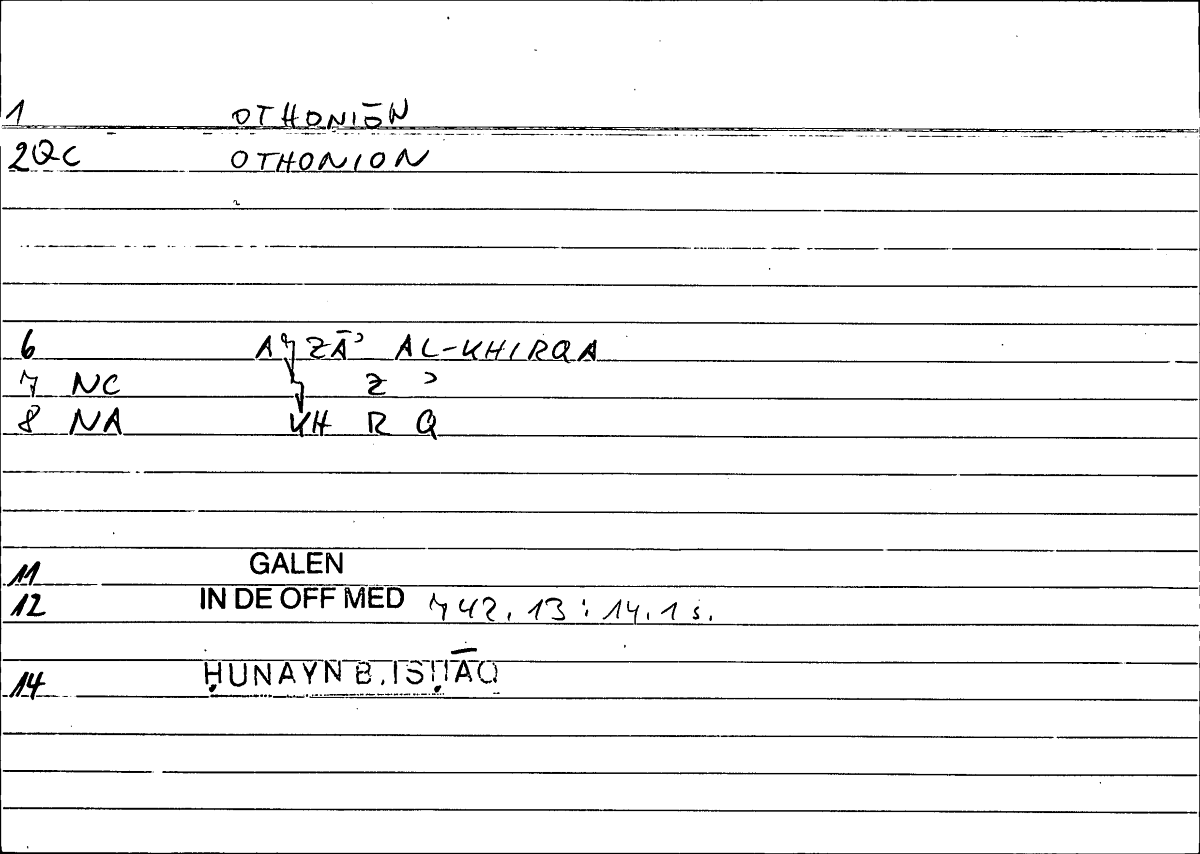 1 OTHONIŌN
2QC OTHONION
6 AJZĀʾ AL-KHIRQA
7 NC J Z ʾ
8 NA KH R Q
11 GALEN
12 IN DE OFF MED 742.13 : 14.1 s.
14 ḤUNAYN B. ISḤĀQ